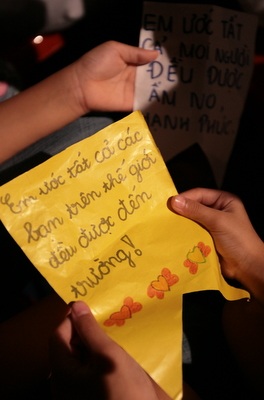 EM ƯỚC TẤT
CẢ MỌI NGƯỜI
ĐỀU ĐƯỢC
ẤM NO,
HẠNH PHÚC.
Em ước tất cả các
bạn trên thế giới
đều được đến
trường!